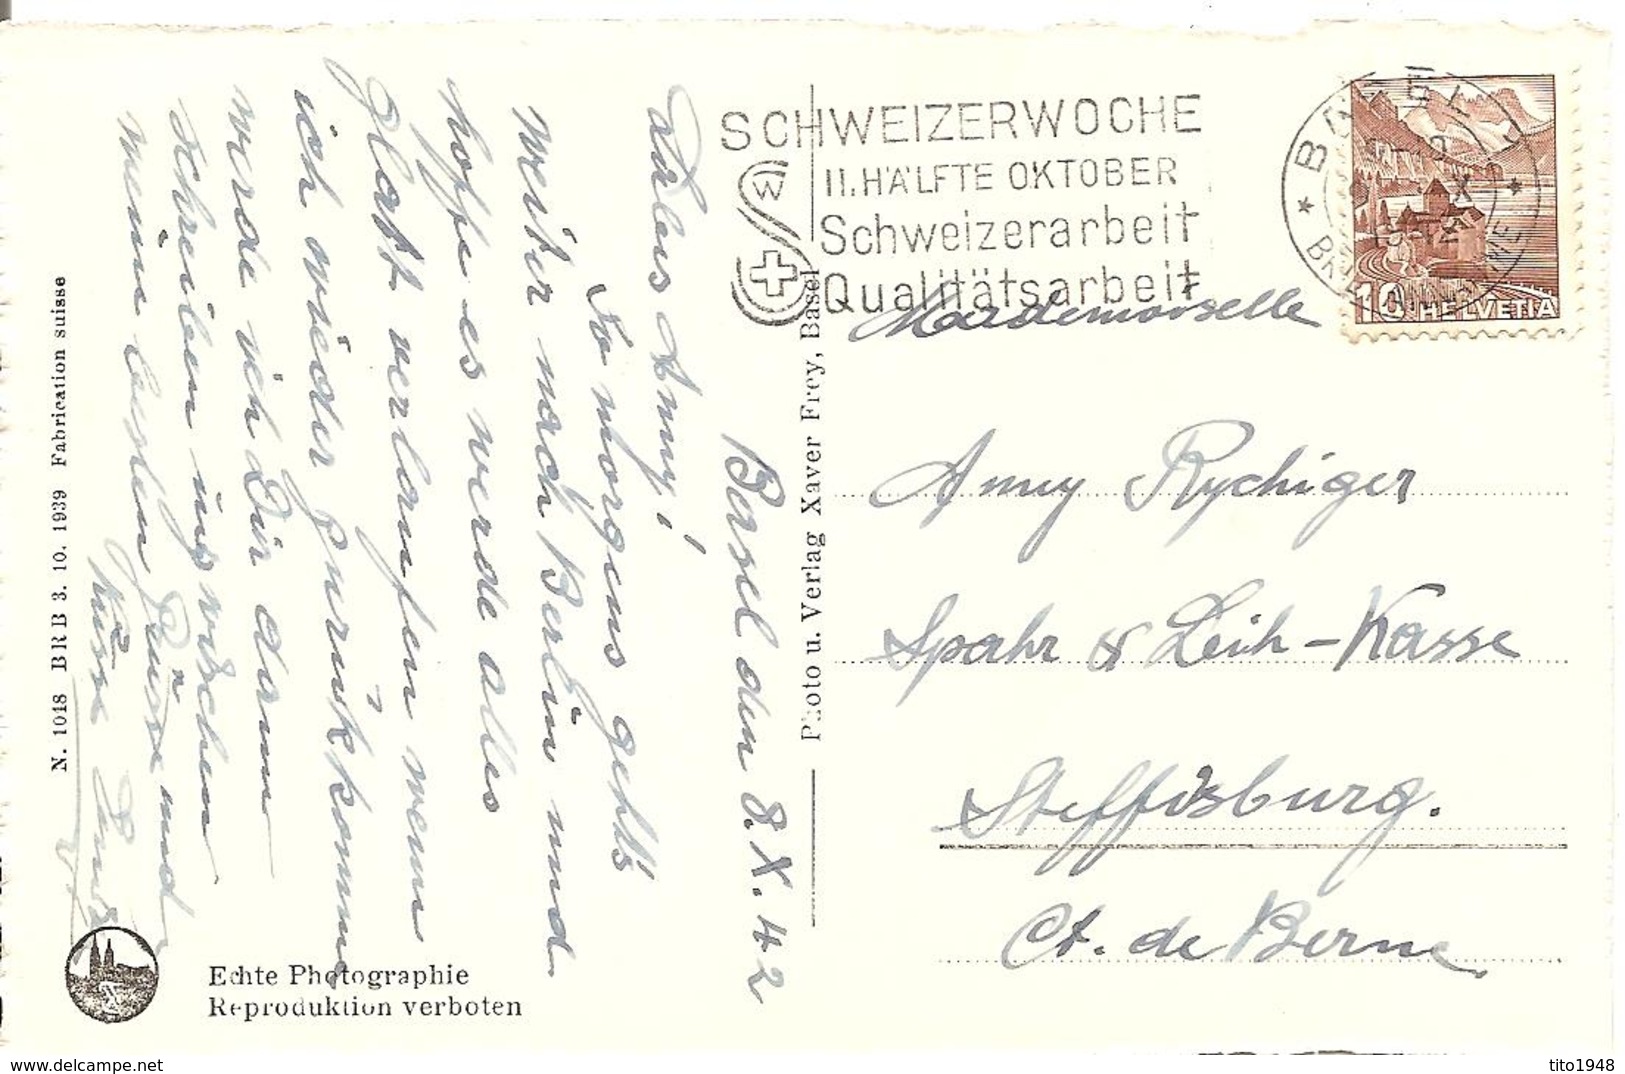 Basel den 8. X. 42
Liebes Anny!
So morgens geht's
weiter nach Berlin und
hoffe es werde alles
glatt verlaufen wenn
ich wieder zurückkomme
werde ich Dir dann
schreiben inzwischen
meine besten Grüsse und
Küsse
Photo u. Verlag Xaver Frey, Basel
N. 1018 BRB 3. 10. 1939 Fabrication suisse
Echte Photographie
Reproduktion verboten
SCHWEIZERWOCHE
II. HÄLFTE OKTOBER
Schweizerarbeit
Qualitätsarbeit
W
BASEL
10 HELVETIA
Mademoiselle
Anny Rychiger
Spahr & Leih-Kasse
Steffisburg.
Ct. de Berne
tito1948